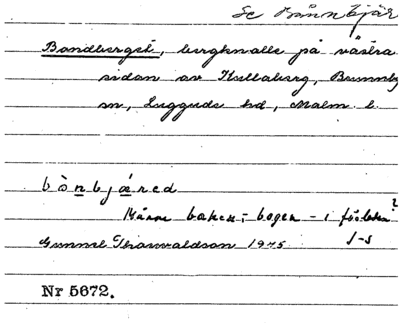 Se Bånnbjär
Bondberget, bergknalle på västra
sidan av Kullaberg, Brunnby
sn, Luggude hd, Malm. l.
bònbjæred
baken,- bogen - i
Gunnel Thorwaldson 1945
Nr 5672.